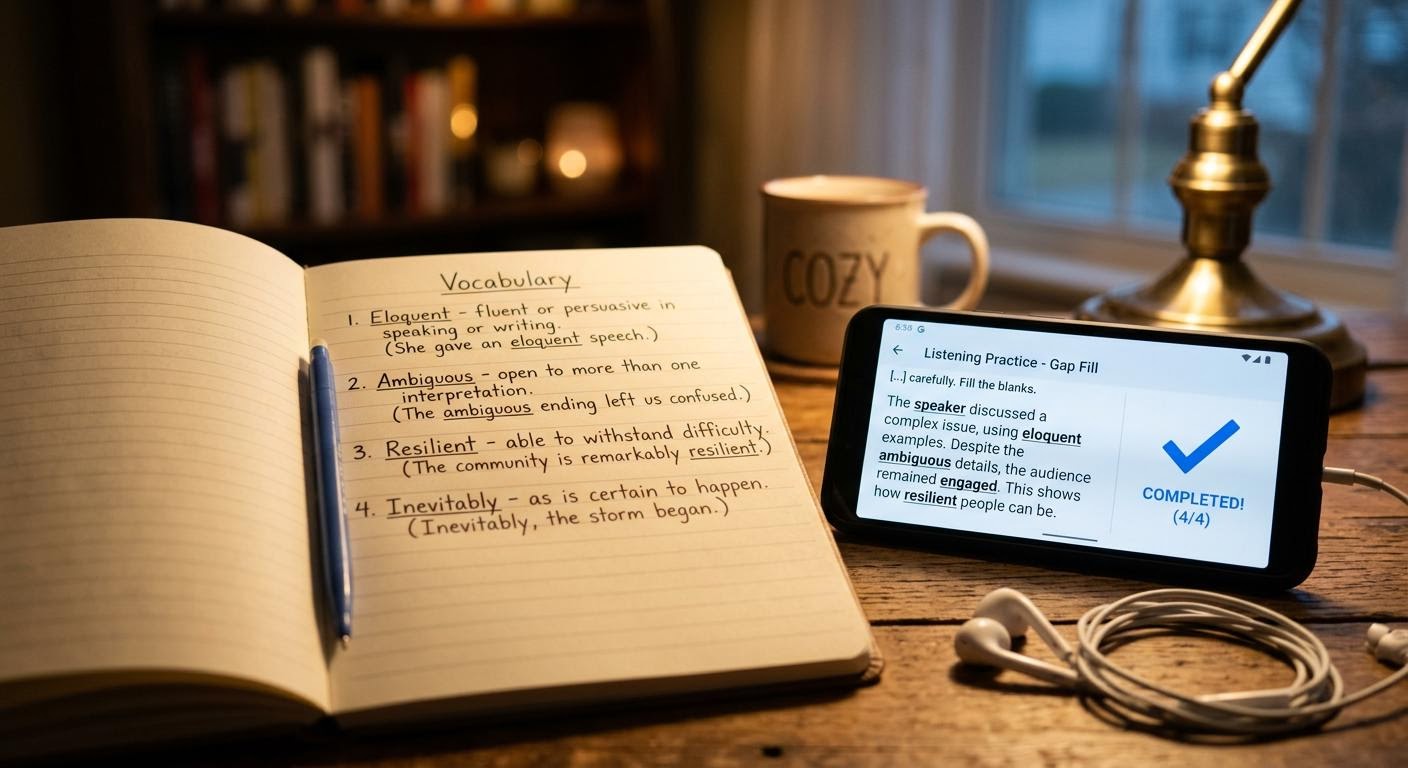 Vocabulary
1. Eloquent – fluent or persuasive in
speaking or writing.
(She gave an eloquent speech.)
2. Ambiguous – open to more than one
interpretation.
(The ambiguous ending left us confused.)
3. Resilient – able to withstand difficulty.
(The community is remarkably resilient.)
4. Inevitably – as is certain to happen.
(Inevitably, the storm began.)
COZY
6:30 G
← Listening Practice - Gap Fill
[...] carefully. Fill the blanks.
The speaker discussed a
complex issue, using eloquent
examples. Despite the
ambiguous details, the audience
remained engaged. This shows
how resilient people can be.
COMPLETED!
(4/4)